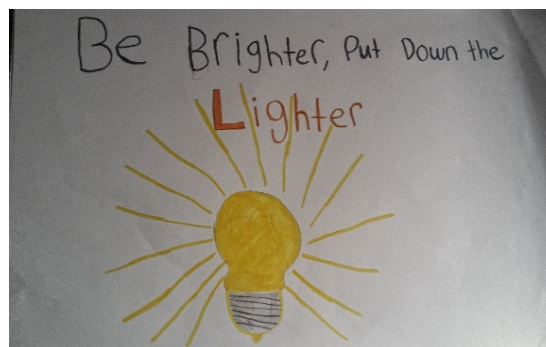 Be Brighter, Put Down the
Lighter